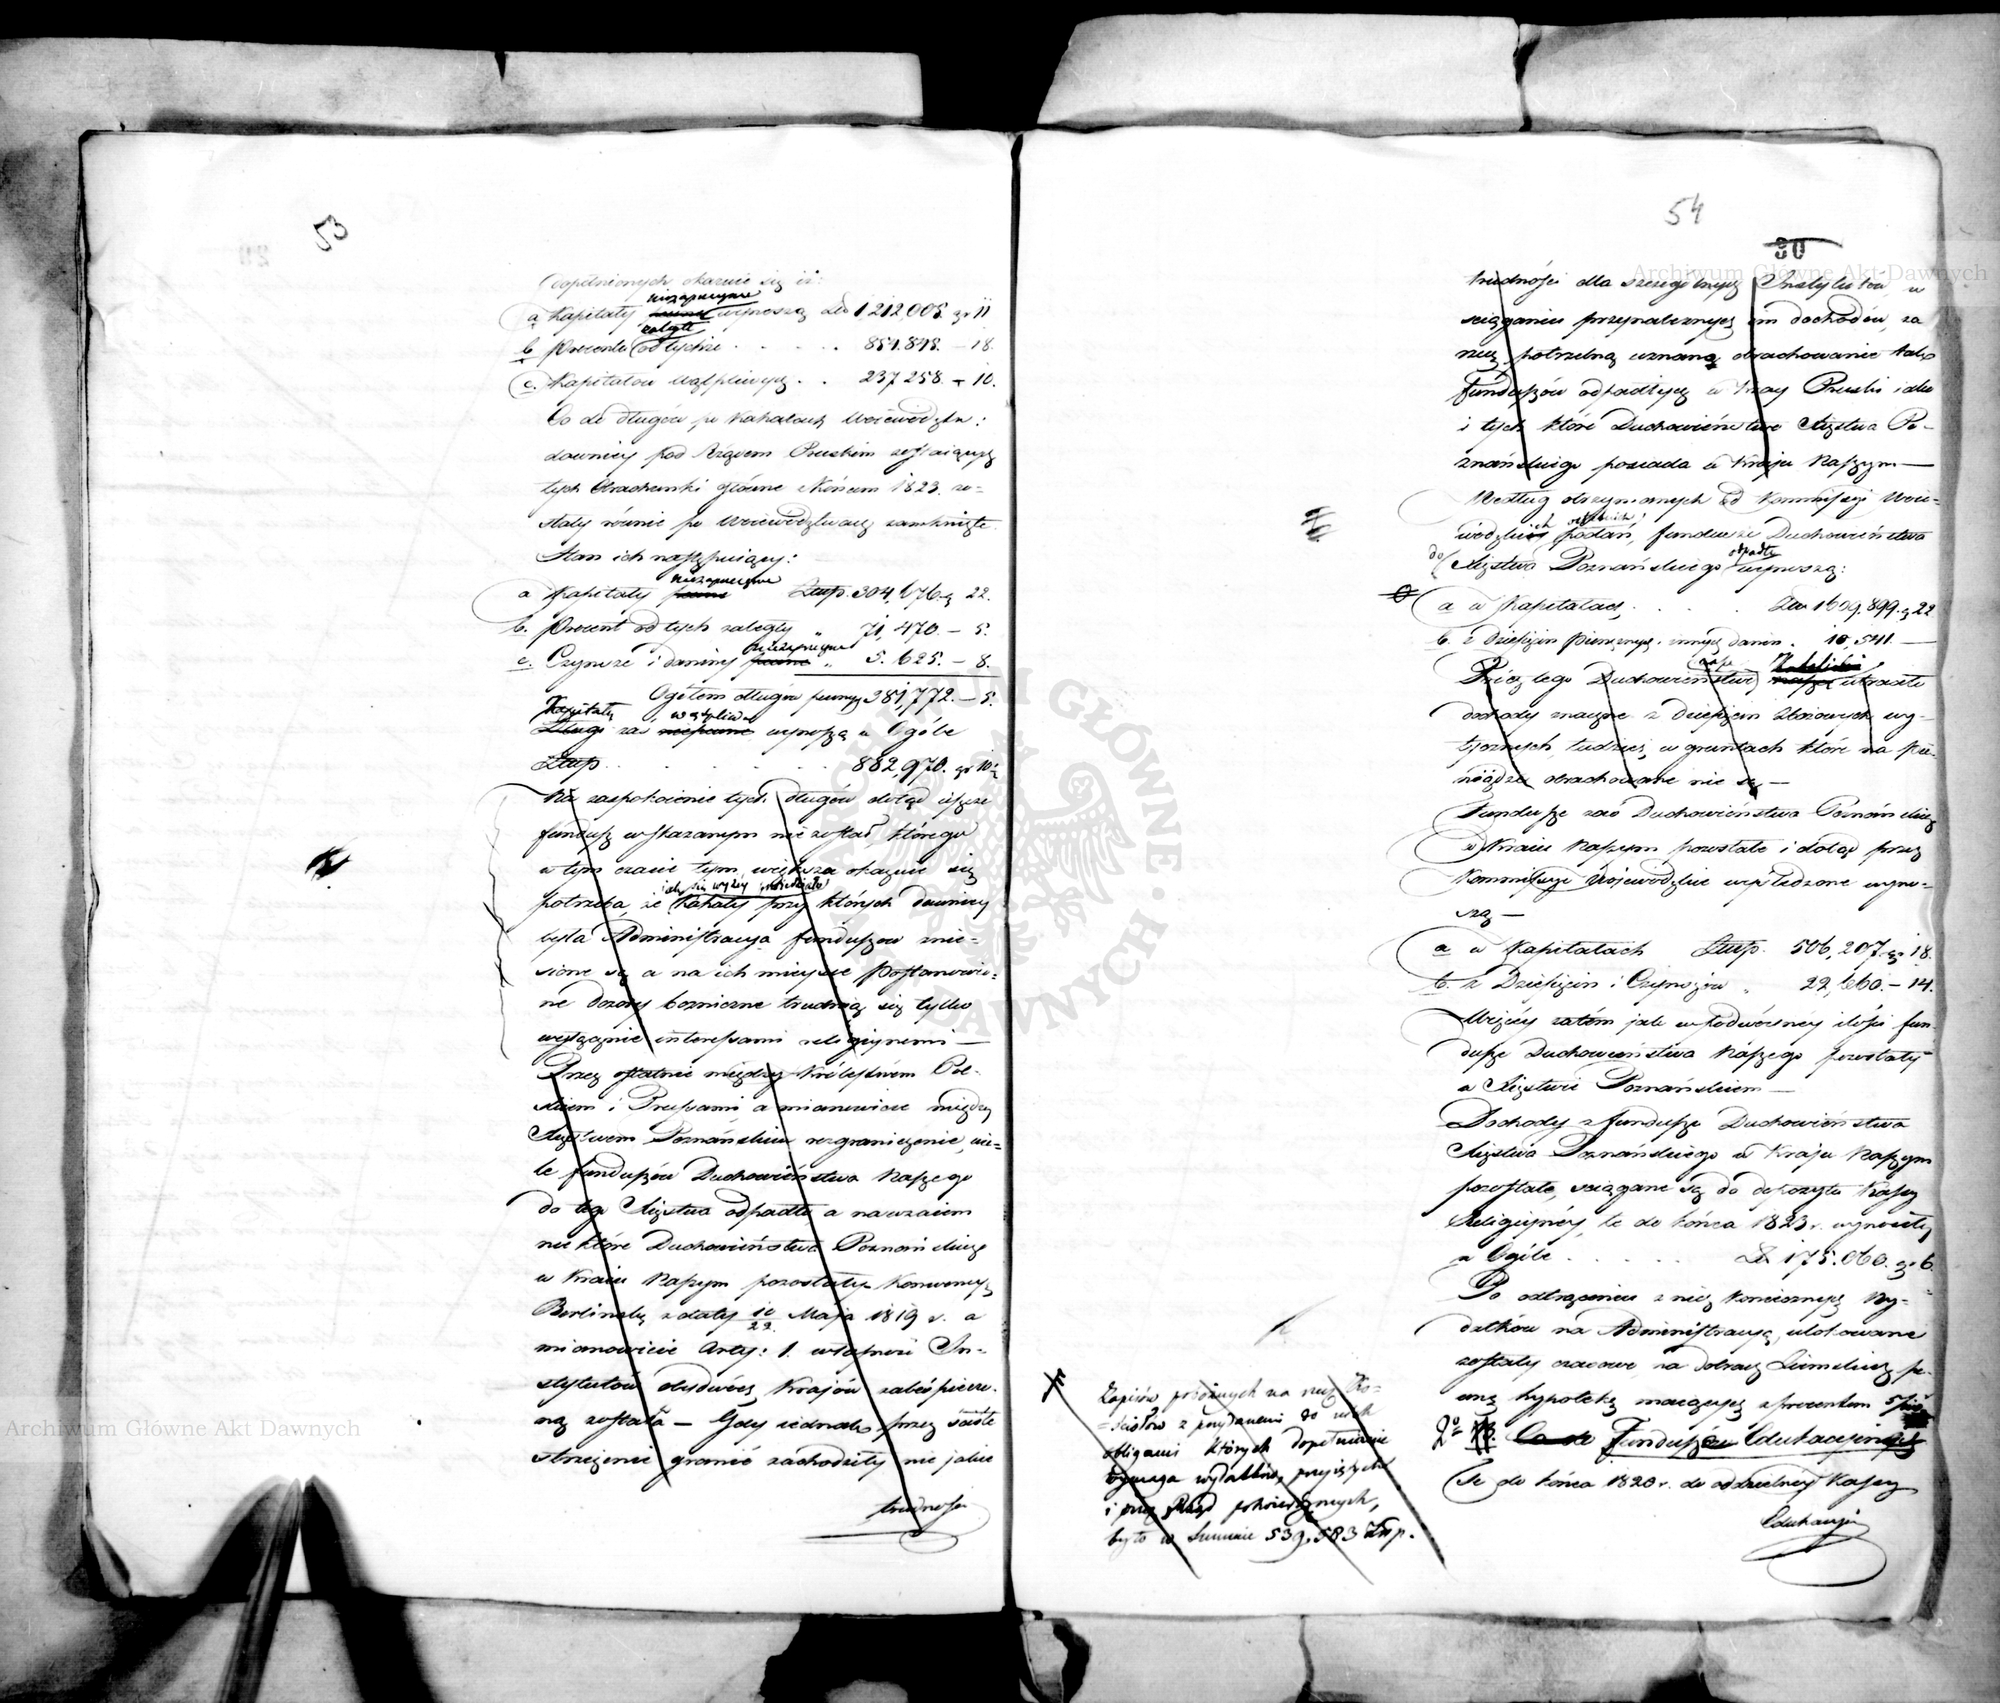 53
dopełnionych okazuie się iż:
a Kapitały pewne niezaprzeczone wynoszą Złp 1,212,005. gr 11
b Procenta od tychże zaległe . . . . . 851.898. – 18.
c. Kapitałow wątpliwych . . 237 258. – 10.
Co do długów po Kahałach Wojewodztw:
dawniey pod Rządem Pruskim zostaiących
tych Obrachunki główne z Końcem 1823. zo=
stały równie po Wojewodztwach zamknięte.
Stan ich następuiący:
a Kapitały pewne niezaprzeczone Złp. 304,676. g 22.
b. Procent od tych zaległy „ 71,470. – 5.
c. Czynsze i daniny pewne niezaprzeczone „ 5.625. – 8.
Ogółem długów pewnych 381,772. – 5.
Długi Kapitały zaś niepewne wątpliwe wynoszą w Ogóle
Złp . . . . . . . 882,970. gr 10½
Na zaspokoienie tych długów dotąd ieszcze
fundusz wskazanym nie został, którego
w tym czasie tym większa okazuie się
potrzeba, że iak się wyżey powiedziało Kahały przy których dawniey
była Administracya funduszow znie=
sione są a na ich mieysce postanowio=
ne dozory bożniczne trudnią się tylko
wyłącznie interessami religiynemi —
Przez ostatnie między Królestwem Pol=
skiem i Prussami a mianowicie między
Xięstwem Poznańskim rozgraniczenie, wie=
le funduszów Duchowieństwa Naszego
do tego Xięstwa odpadło a nawzaiem
nie które Duchowieństwa Poznańskiego
w Kraiu Naszym pozostały. Konwencyą
Berlinską z daty 10/22. Maja 1819 r. a
mianowicie Arty: 1. własność In=
stytutów obydwóch Krajów zabespieczo=
ną została — Gdy iednak przez ścisłe
strzeżenie granic zachodziły nie jakie
trudności
54
30
trudności dla szczególnych Instytutów w
sciąganiu przynależnych im dochodów, za
rzecz potrzebną uznaną obrachowanie tak
funduszów odpadłych w Kray Pruski iako
i tych które Duchowieństwo Xięstwa Po=
znańskiego posiada w Kraju Naszym —
Według otrzymanych od Kommissyi Woie=
wódzkich podań, fundusze Duchowieństwa
do Xięstwa Poznańskiego odpadłe wynoszą:
a w Kapitałach . . . . Złp 1609.899. g 22
b. z dziesięcin pienężnych i innych danin . 10,541. —
Prócz tego Duchowieństwo nasze utraciło
dochody znaczne z dziesięcin zbożowych wy=
tycznych, tudzież w gruntach które na pie=
niądze obrachowane nie są —
Fundusze zaś Duchowieństwa Poznańskiego
w Kraiu Naszym pozostałe i dotąd przez
Kommissye Wojewódzkie wyśledzone wyno=
szą —
a w Kapitałach Złp. 506,207. gr 18.
b. z Dziesięcin i Czynszów „ 22,660. – 14.
Więcéy zatém jak w podwóynéy ilości fun=
dusze Duchowieństwa Naszego pozostały
w Xięstwie Poznańskiem —
Dochody z funduszu Duchowieństwa
Xięstwa Poznańskiego w Kraju Naszym
pozostałe, sciągane są do depozytu Kassy
Religiynéy, te do końca 1823 r. wynosiły
w Ogóle . . . . . . Zł 175.060. gr 6.
Po odtrąceniu z nich koniecznych Wy=
datków na Administracyą, ulokowane
zostały czasowo na dobrach Ziemskich pe=
wną hypotekę maiących z procentem 5
2o Co do Funduszów Edukacyjnych
Te do końca 1820 r. do oddzielnéy Kassy
Edukacyi
Zapisów położonych na rzecz Ko=
=ściołów z przydaniem do nich
obligacii których dopełnienie
wymaga wydatków, przyiętych
i przez Rząd potwierdzonych,
było w Summie 539.583 Złp.
Archiwum Główne Akt Dawnych
Archiwum Główne Akt Dawnych
ARCHIWUM GŁÓWNE AKT DAWNYCH